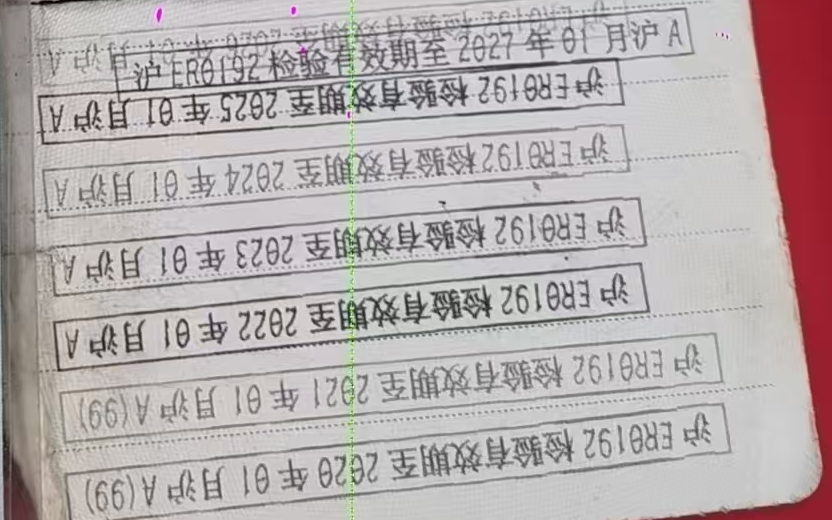 沪ER0192 检验有效期至 2020 年 01 月沪 A(99)
沪ER0192 检验有效期至 2021 年 01 月沪 A(99)
沪ER0192 检验有效期至 2022 年 01 月沪 A
沪ER0192 检验有效期至 2023 年 01 月沪 A
沪ER0192 检验有效期至 2024 年 01 月沪 A
沪ER0192 检验有效期至 2025 年 01 月沪 A
沪ER0192 检验有效期至 2026 年 01 月沪 A
沪ER0192 检验有效期至 2027 年 01 月沪 A